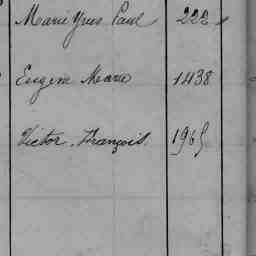 Marie Yves Paul 222
Eugène Marie 1438
Victor, François. 1965